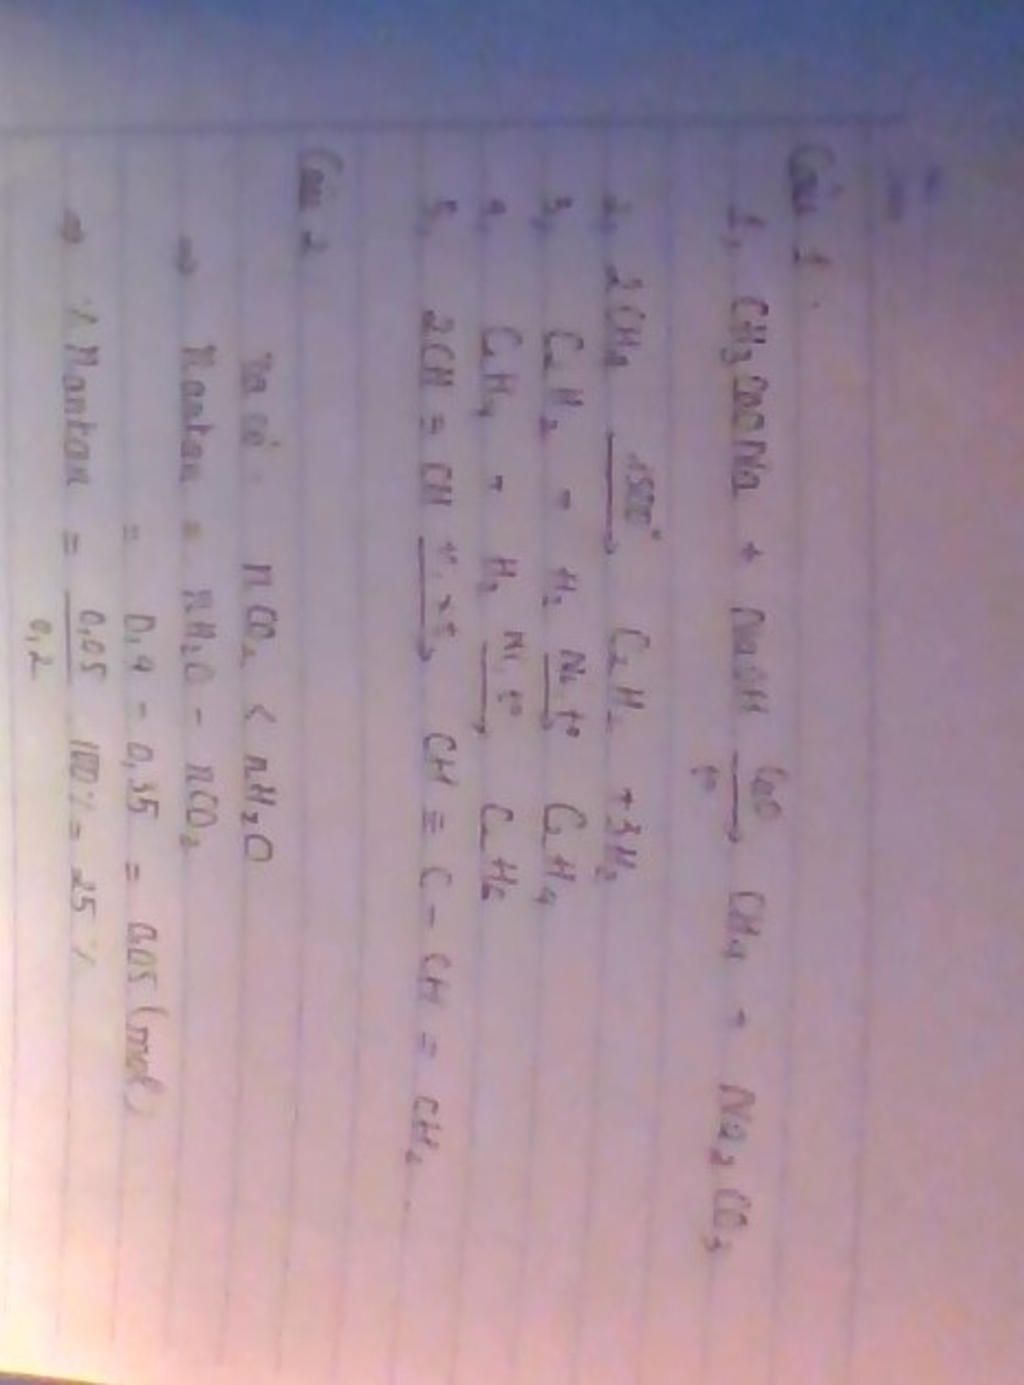 Câu 1.
1, CH₃COONa + NaOH —CaO, t°→ CH₄ + Na₂CO₃
2, 2CH₄ —1500°→ C₂H₂ + 3H₂
3, C₂H₂ + H₂ —Ni t°→ C₂H₄
4, C₂H₄ + H₂ —Ni, t°→ C₂H₆
5, 2CH ≡ CH —t°, xt→ CH ≡ C - CH = CH₂
Câu 2
Ta có: nCO₂ < nH₂O
⇒ nankan = nH₂O - nCO₂
= 0,4 - 0,35 = 0,05 (mol)
⇒ % nankan = 0,05/0,2 100% = 25%